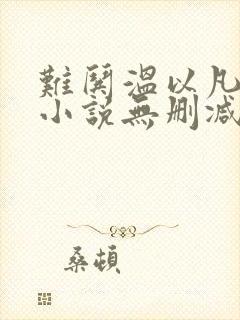 難鬨溫以凡
小說無刪減
桑頓